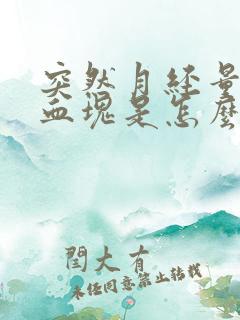 突然月经量
血块是怎么
闫大有
未经同意禁止转载